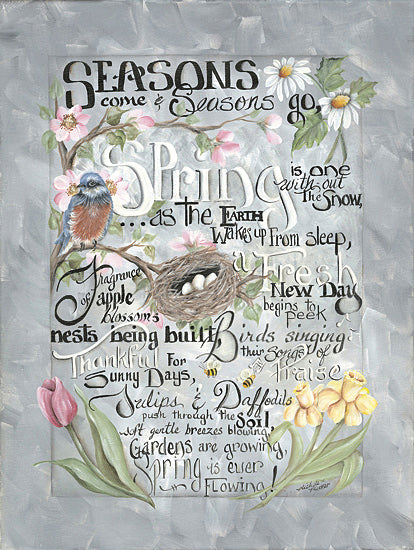 SEASONS
come & Seasons go,
Spring
is one
with out
the Snow,
...as the EARTH
Wakes up From sleep,
a Fresh
Fragrance
of apple
blossoms
New Day
begins to
peek
nests being built,
Birds singing
their Songs of
Praise
Thankful For
Sunny Days,
Tulips & Daffodils
push through the Soil
soft gentle breezes blowing,
Gardens are growing,
Spring is ever
Flowing!